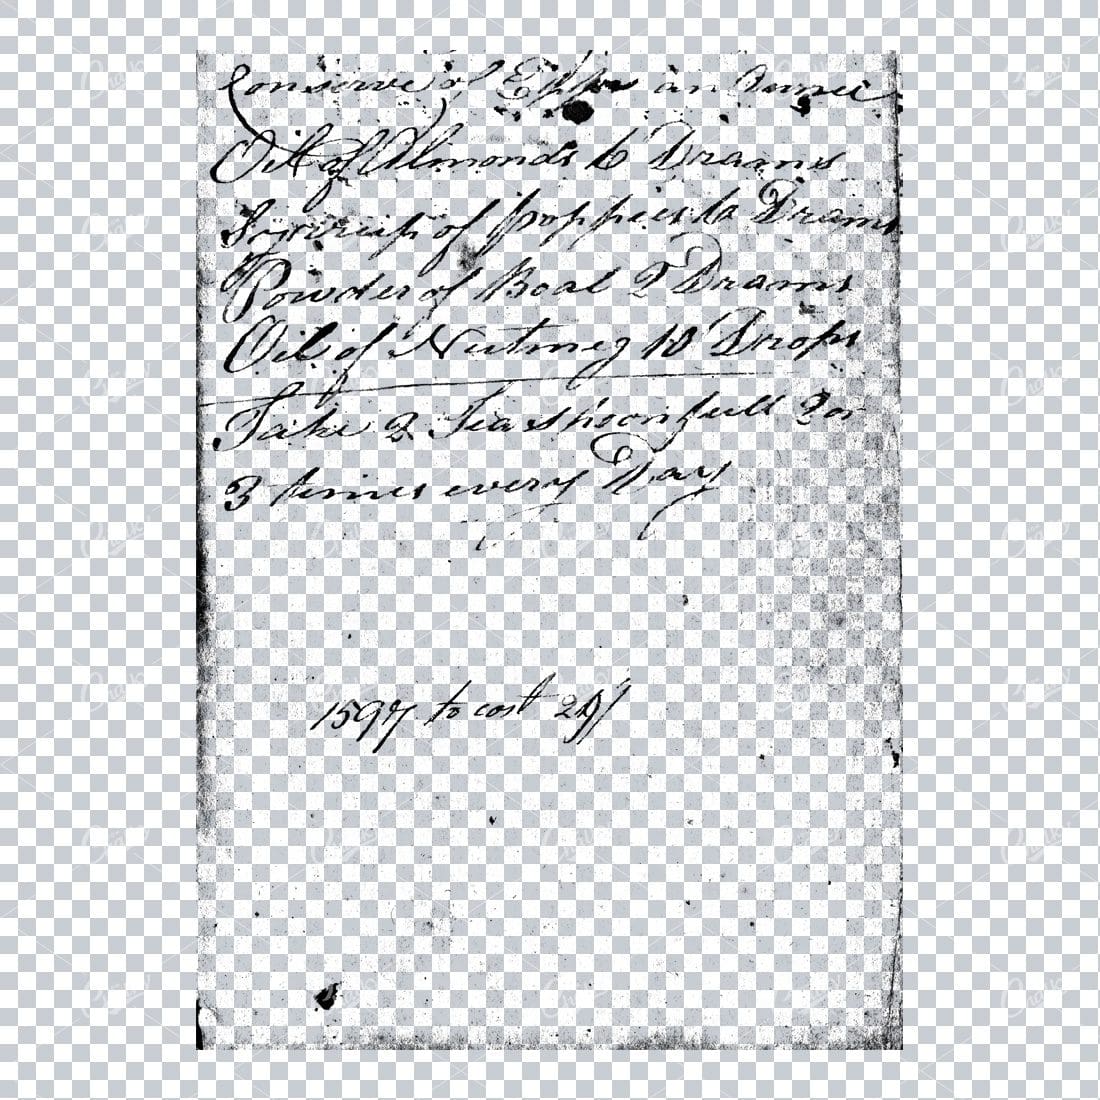 Conserve of an ounce
Oil of Almonds 6 Drams
Syrrup of poppies 6 Drams
Powder of Boal 2 Drams
Oil of Nutmeg 10 Drops
Take 2 Tea Spoonfull 2 or
3 times every Day
1597 to cost